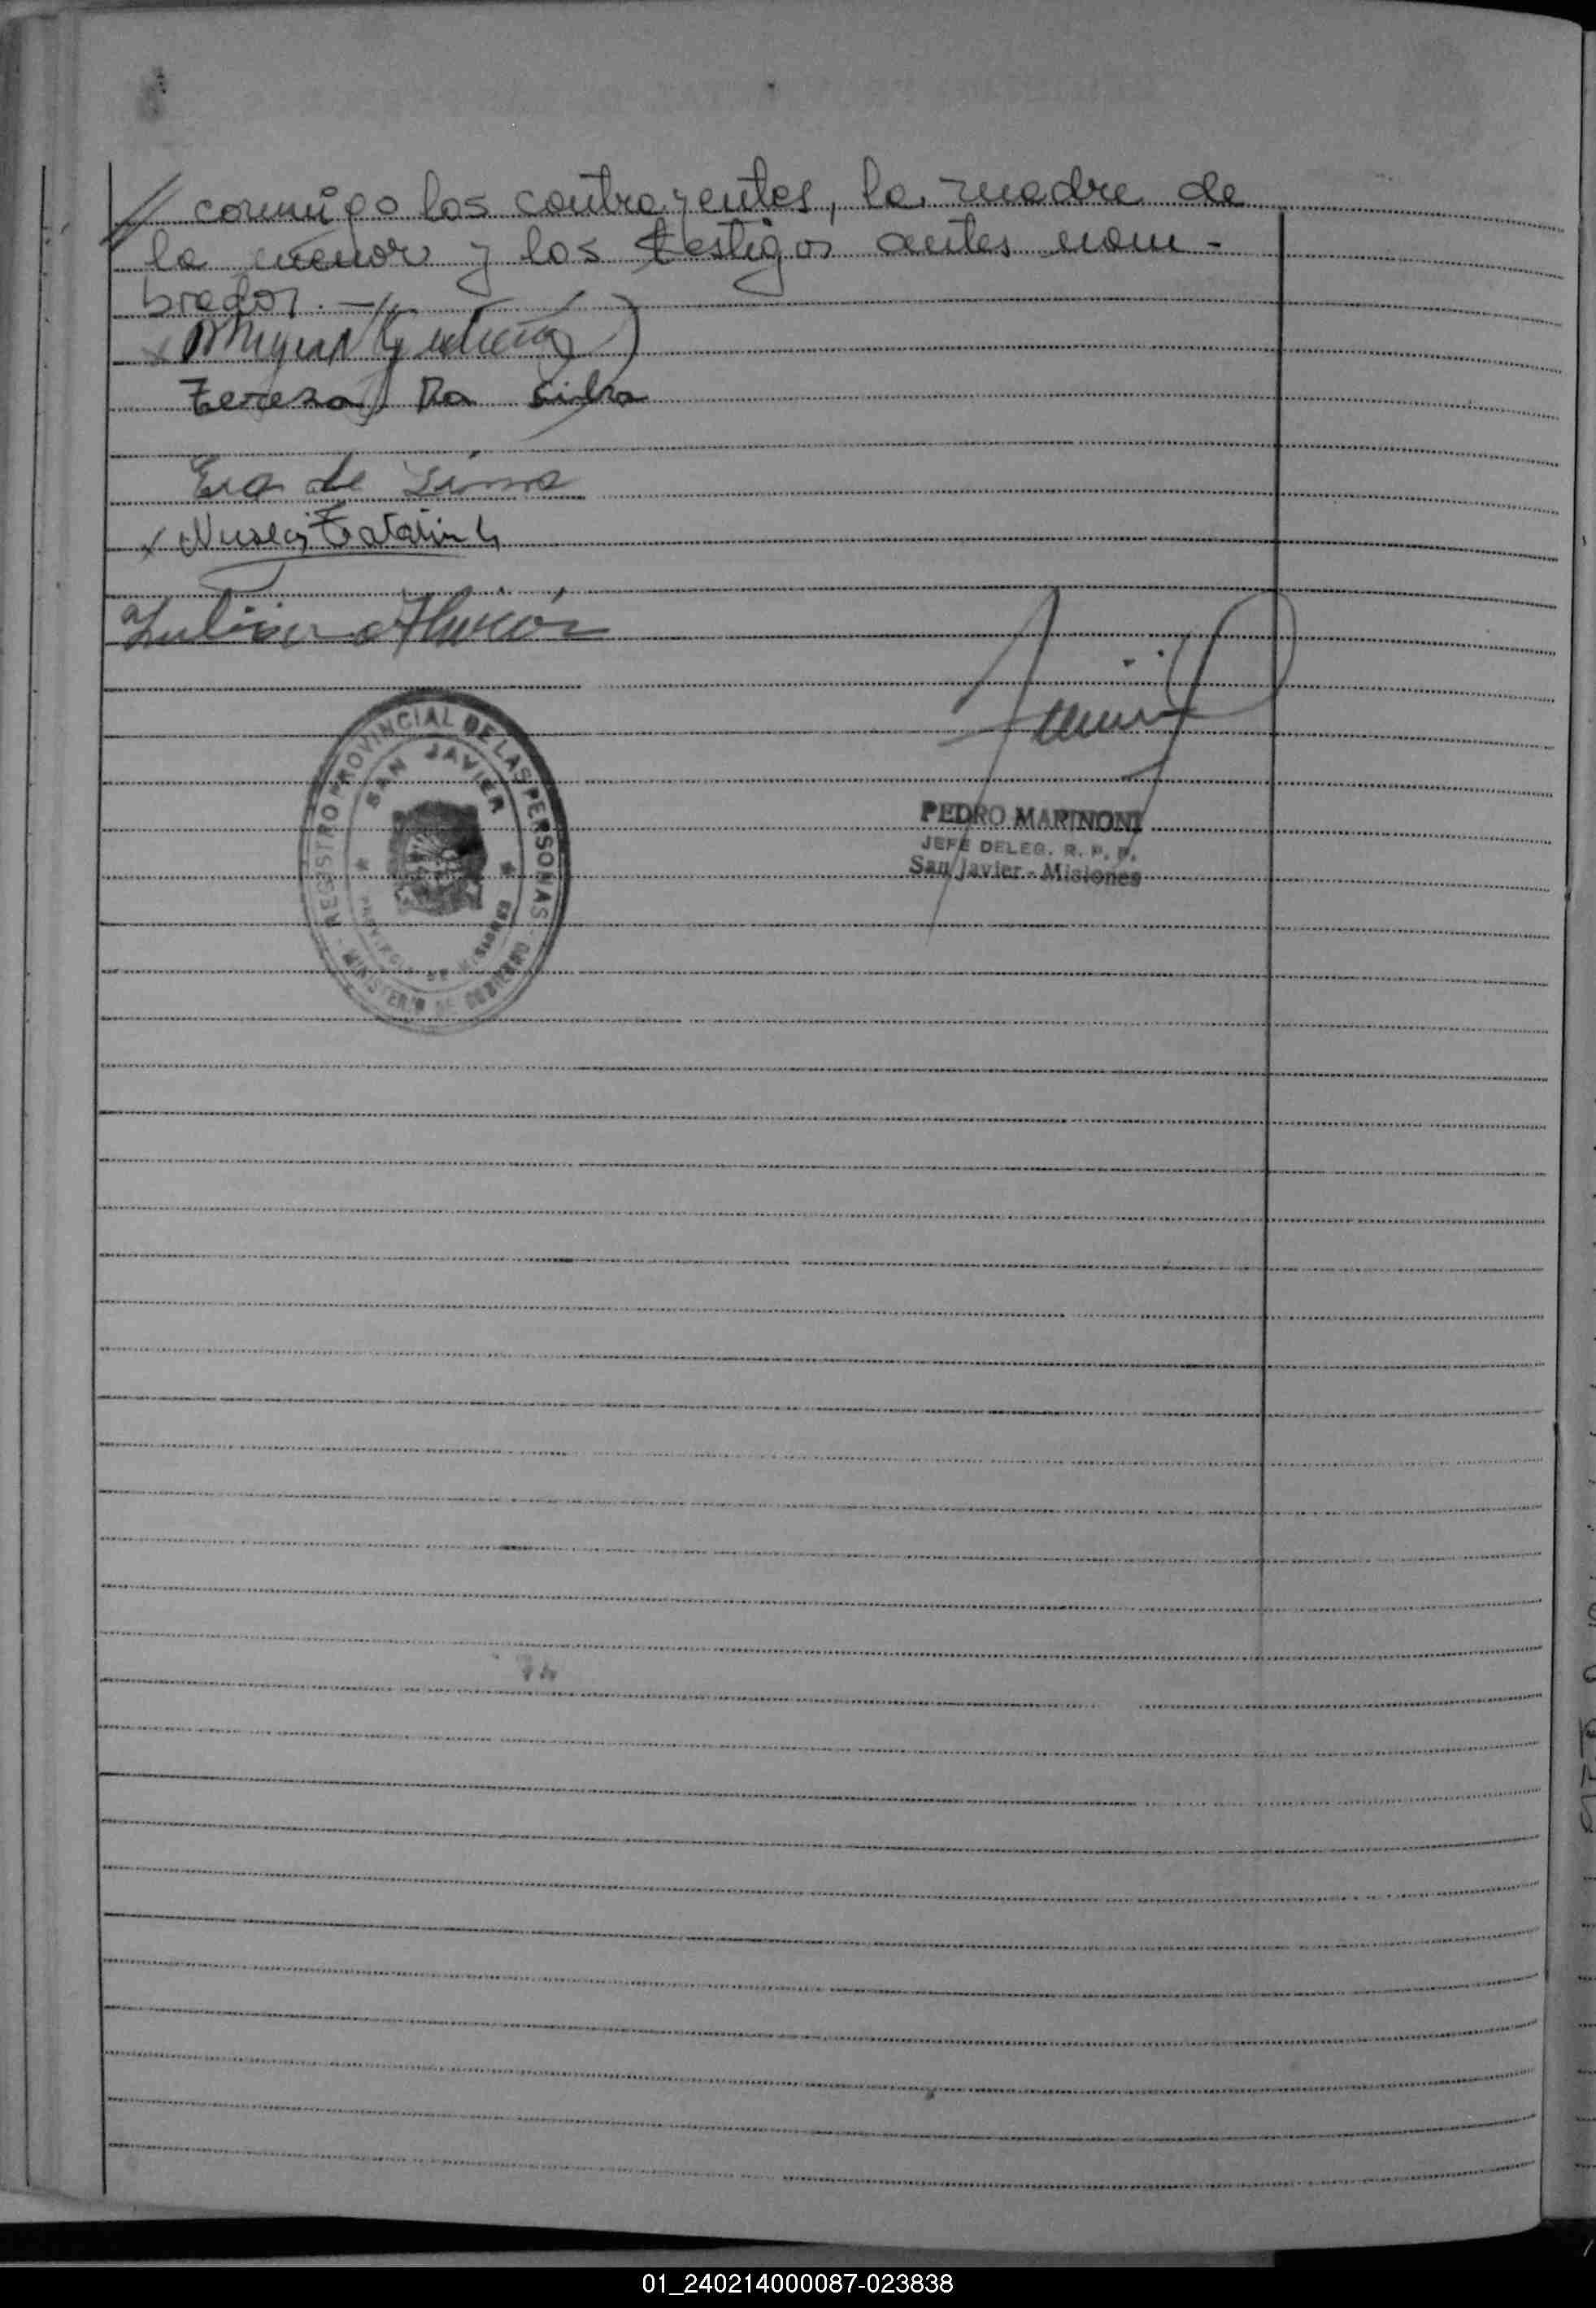 // conmigo los contrayentes, la madre de
la menor y los testigos antes nom-
brados.—
Tereza Da Silva
Eva de Lima
PEDRO MARINONI
JEFE DELEG. R. P. P.
San Javier - Misiones
REGISTRO PROVINCIAL DE LAS PERSONAS
SAN JAVIER
PROVINCIA DE MISIONES
MINISTERIO DE GOBIERNO
01_240214000087-023838